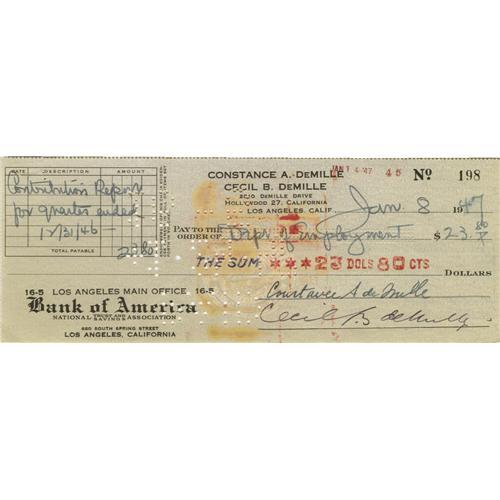 DATE DESCRIPTION AMOUNT
Contribution Report
for quarter ended
12/31/46 —
23.80
TOTAL PAYABLE
CONSTANCE A. DEMILLE
CECIL B. DEMILLE
DEMILLE DRIVE
HOLLYWOOD 27, CALIFORNIA
LOS ANGELES, CALIF.
JAN 14 '47 45
No 198
Jan. 8 1947
PAY TO THE ORDER OF Dept. of Employment $23.80
THE SUM ***23 DOLS 80 CTS
DOLLARS
16-5 LOS ANGELES MAIN OFFICE 16-5
Bank of America
NATIONAL TRUST AND SAVINGS ASSOCIATION
660 SOUTH SPRING STREET
LOS ANGELES, CALIFORNIA
Constance A de Mille
Cecil B de Mille